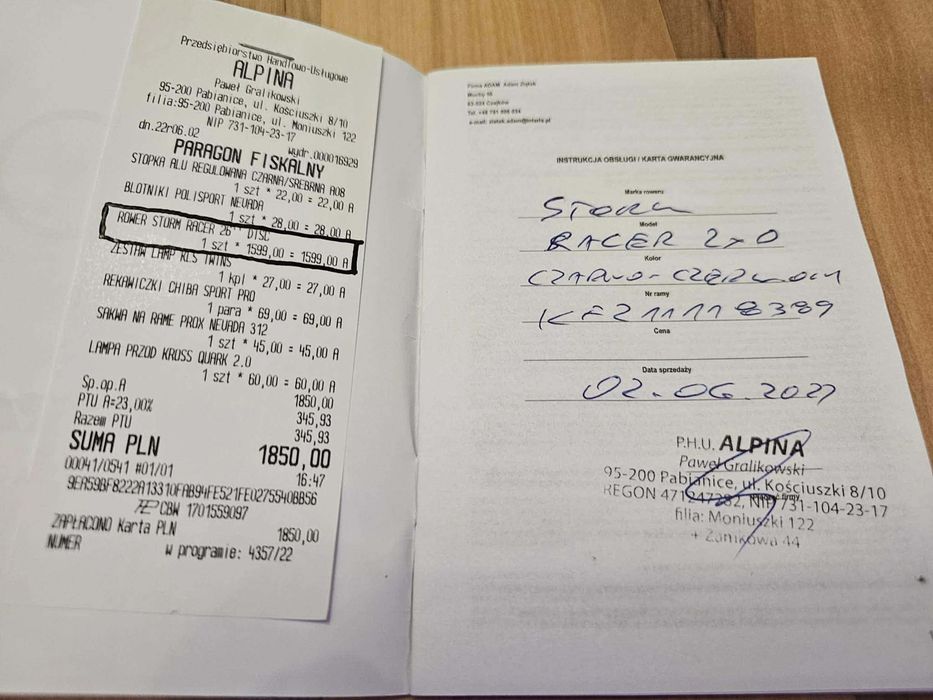 Przedsiębiorstwo Handlowo-Usługowe
ALPINA
Paweł Gralikowski
95-200 Pabianice, ul. Kościuszki 8/10
filia:95-200 Pabianice, ul. Moniuszki 122
NIP 731-104-23-17
dn.22r06.02 wydr.000016929
PARAGON FISKALNY
STOPKA ALU REGULOWANA CZARNA/SREBRNA A08
1 szt * 22,00 = 22,00 A
BLOTNIKI POLISPORT NEVADA
1 szt * 28,00 = 28,00 A
ROWER STORM RACER 26" DISC
1 szt * 1599,00 = 1599,00 A
ZESTAW LAMP KLS TWINS
1 kpl * 27,00 = 27,00 A
REKAWICZKI CHIBA SPORT PRO
1 para * 69,00 = 69,00 A
SAKWA NA RAME PROX NEVADA 312
1 szt * 45,00 = 45,00 A
LAMPA PRZOD KROSS QUARK 2.0
1 szt * 60,00 = 60,00 A
Sp.op.A 1850,00
PTU A=23,00% 345,93
Razem PTU 345,93
SUMA PLN 1850,00
00041/0541 #01/01 16:47
9EA59BF8222A13310FAB94FE521FE0275540BB56
CBW 1701559097
ZAPŁACONO Karta PLN 1850,00
NUMER w programie: 4357/22
Firma ADAM Adam
Tel.
e-mail:
INSTRUKCJA OBSŁUGI / KARTA GWARANCYJNA
Marka roweru
STORM
Model
RACER 2x0
Kolor
CZARNO-CZERWONY
Nr ramy
Cena
Data sprzedaży
02.06.2022
P.H.U. ALPINA
Paweł Gralikowski
95-200 Pabianice, ul. Kościuszki 8/10
REGON 471247282, NIP 731-104-23-17
filia: Moniuszki 122
+ Zamkowa 44